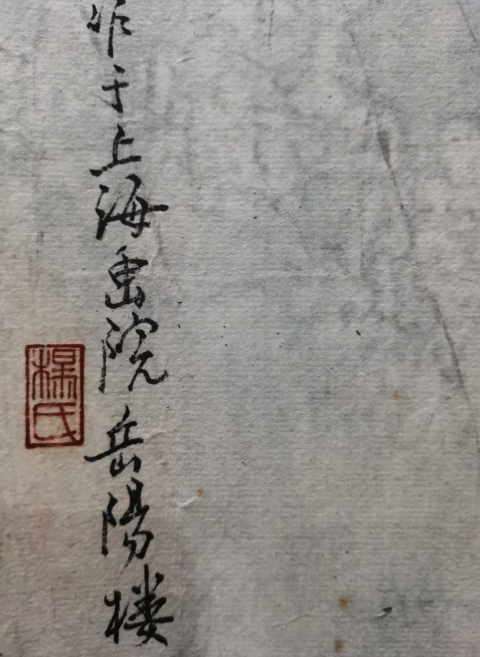 作于上海画院岳陽楼
楊氏